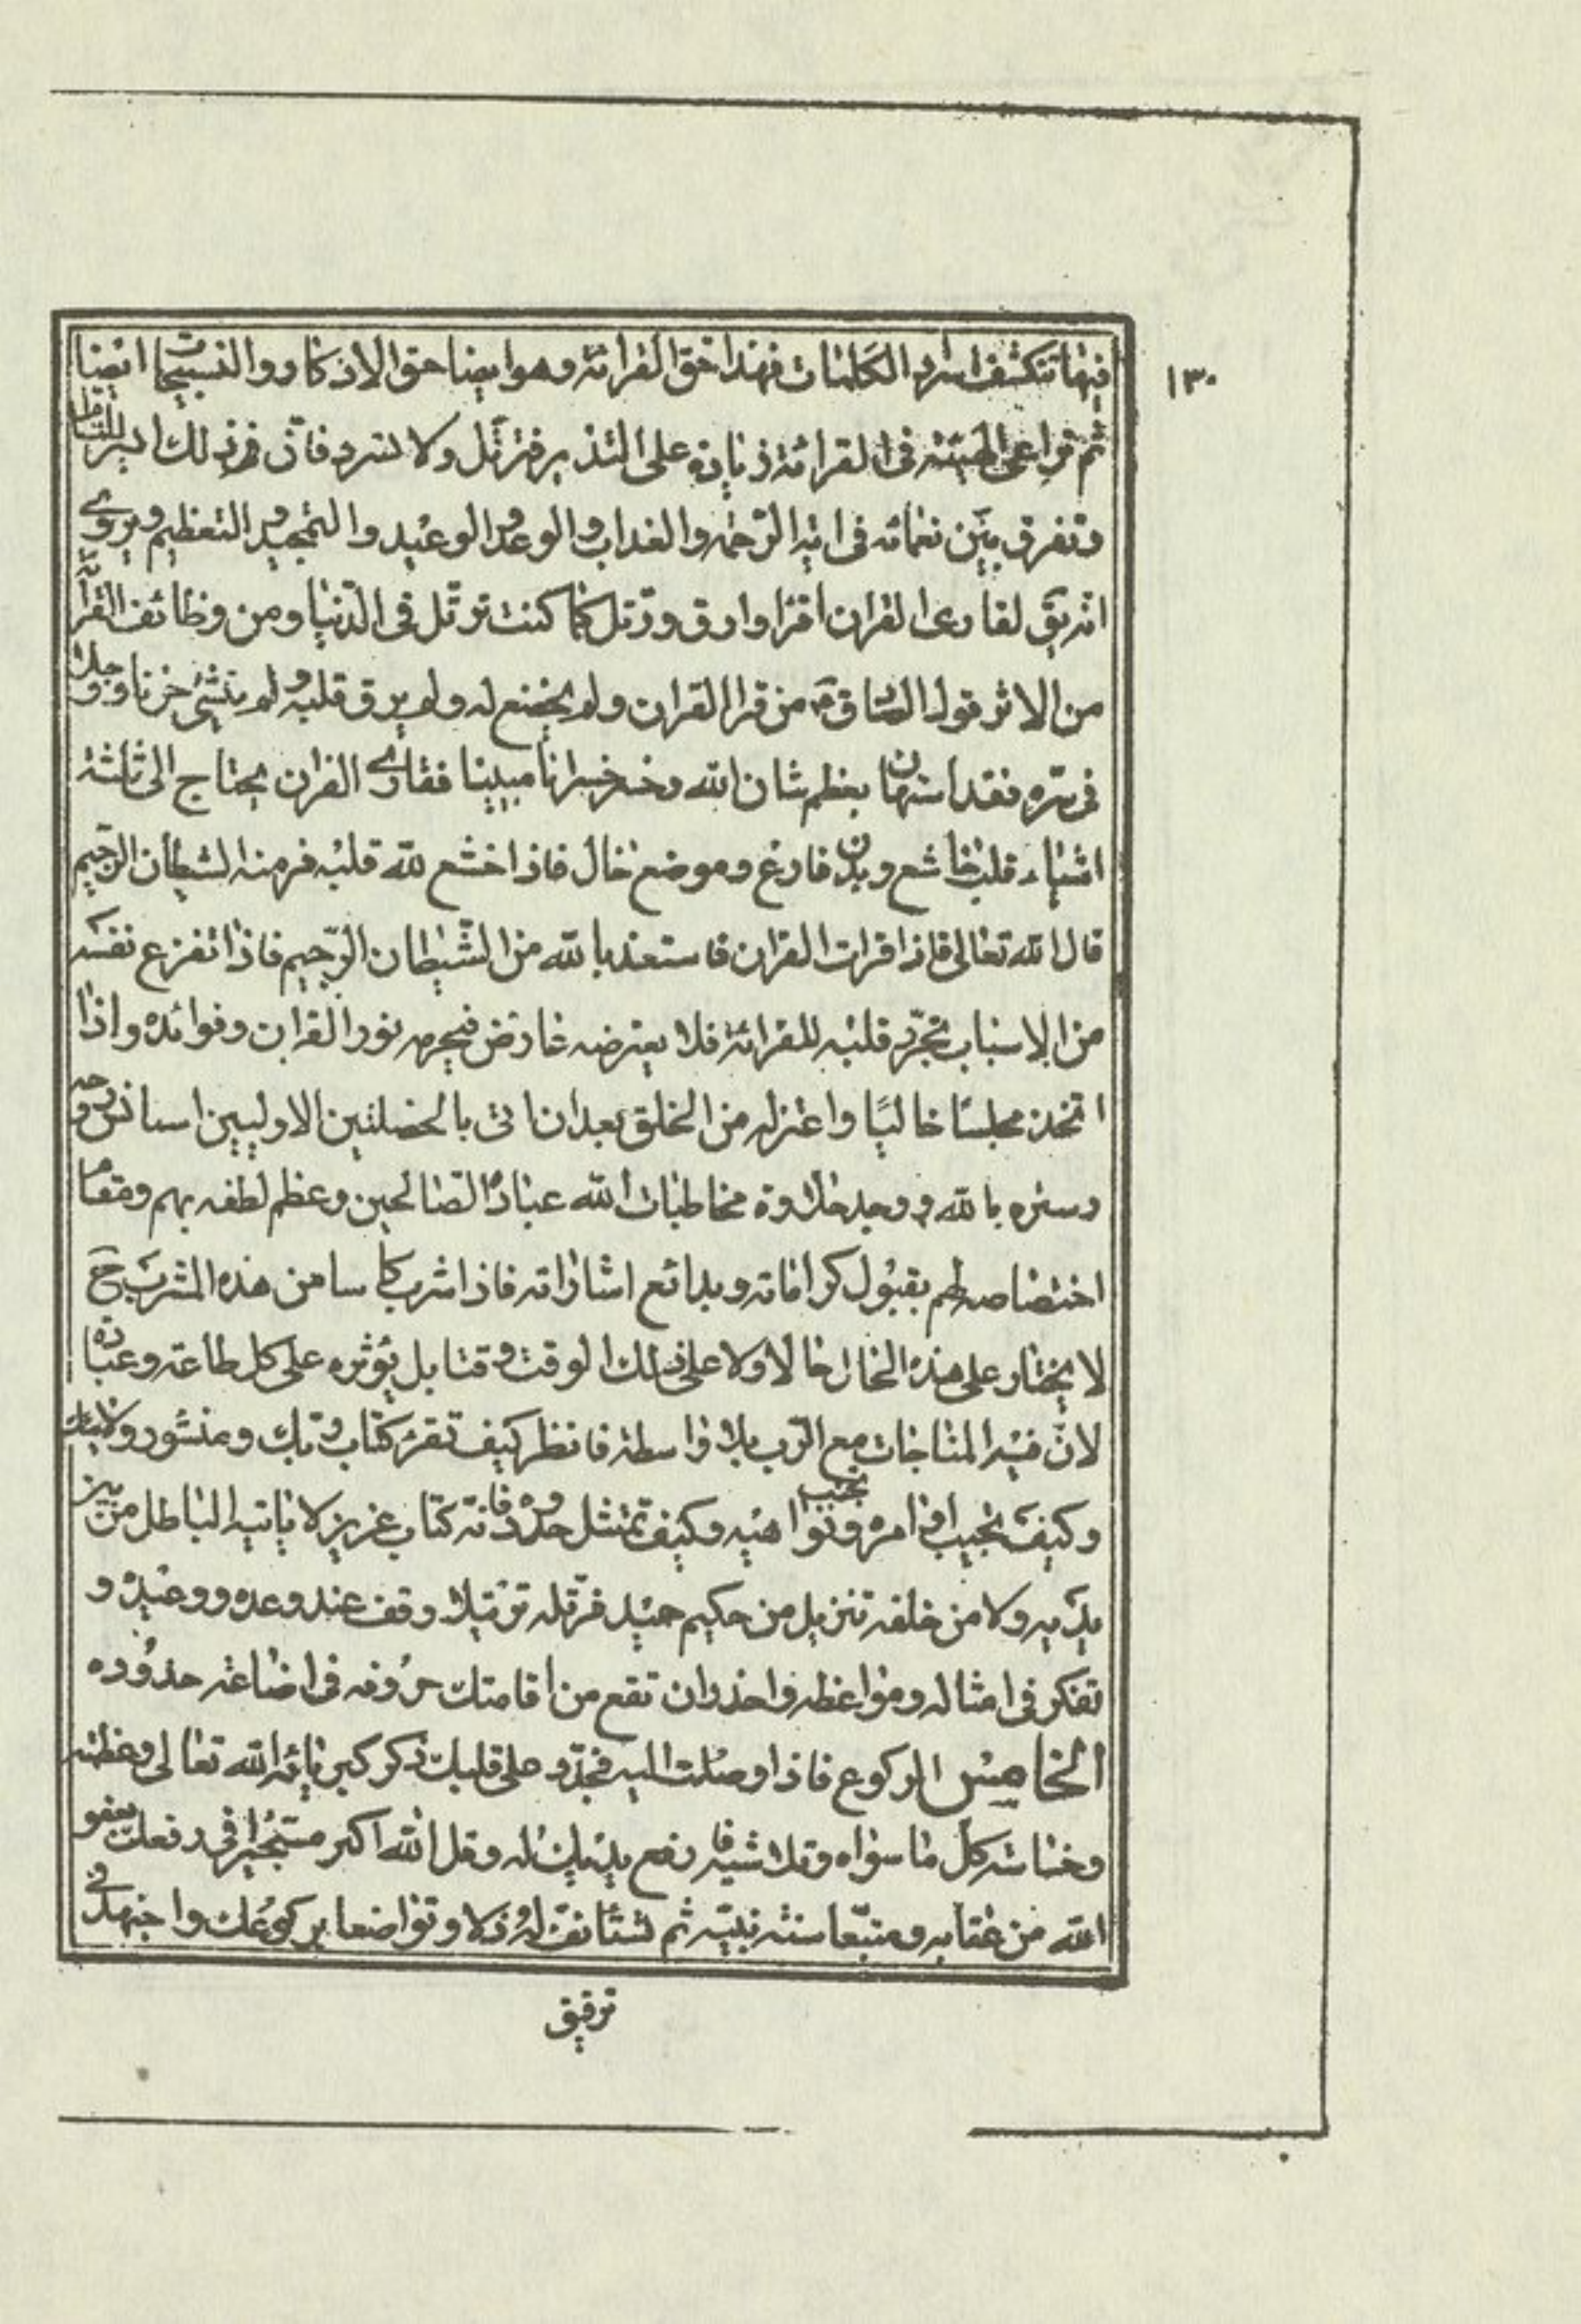 ١٣٠
فيها تنكشف اسرار الكلمات فهذا حق القرائة وهو ايضا حق الاذكار والتسبيحات ايضا
ثم تراعى الهيئة فى القرائة زيادة على التذبر فترتل ولا تسرد فان فى ذلك ايسر للتامل
وتفرق بين نغماته فى اية الرحمة والعذاب والوعد والوعيد والتمجيد والتعظيم ويروى
انه يق لقارى القران اقرا وارق ورتل كما كنت ترتل فى الدنيا ومن وظائف القرائة
من الاثر قول الصادق ع من قرا القران ولم يخضع له ولم يرق قلبه ولم ينشئ حزنا ووجلا
فى سره فقد استهان بعظم شان الله وخسر خسرانا مبينا فقارى القران يحتاج الى ثلثة
اشياء قلب خاشع وبدن فارغ وموضع خال فاذا خشع لله قلبه فر منه الشيطان الرجيم
قال الله تعالى فاذا قرات القران فاستعذ بالله من الشيطان الرجيم فاذا تفرغ نفسه
من الاسباب تجرد قلبه للقرائة فلا يعترضه عارض فيحرمه نور القران وفوائده واذا
اتخذ مجلسا خاليا واعتزل من الخلق بعد ان اتى بالخصلتين الاوليين استانس روحه
وسره بالله ووجد حلاوة مخاطبات الله عباده الصالحين وعظم لطفه بهم ومقام
اختصاصه لهم بقبول كراماته وبدائع اشاراته فاذا شرب كاسا من هذه المشرب ح
لا يختار على هذه الحال حالا ولا على ذلك الوقت وقتا بل يؤثره على كل طاعة وعبادة
لان فيه المناجات مع الرب بلا واسطة فانظر كيف تقرء كتاب ربك ومنشور ولايتك
وكيف تجيب اوامره وتجتنب نواهيه وكيف تمتثل حدوده فانه كتاب عزيز لا ياتيه الباطل من بين
يديه ولا من خلفه تنزيل من حكيم حميد فرتله ترتيلا وقف عند وعده ووعيده و
تفكر فى امثاله ومواعظه واحذر ان تقع من اقامتك حروفه فى اضاعة حدوده
الخامس الركوع فاذا وصلت اليه فجدد على قلبك ذكر كبريائه الله تعالى وعظمته
وخساسة كل ما سواه وتلاشيه فارفع يديك له وقل الله اكبر مستجيرا فى رفعك بعفو
الله من عقابه ومتبعا سنة نبيه ثم تستانف له ذلا وتواضعا بركوعك واجتهد فى
ترقيق